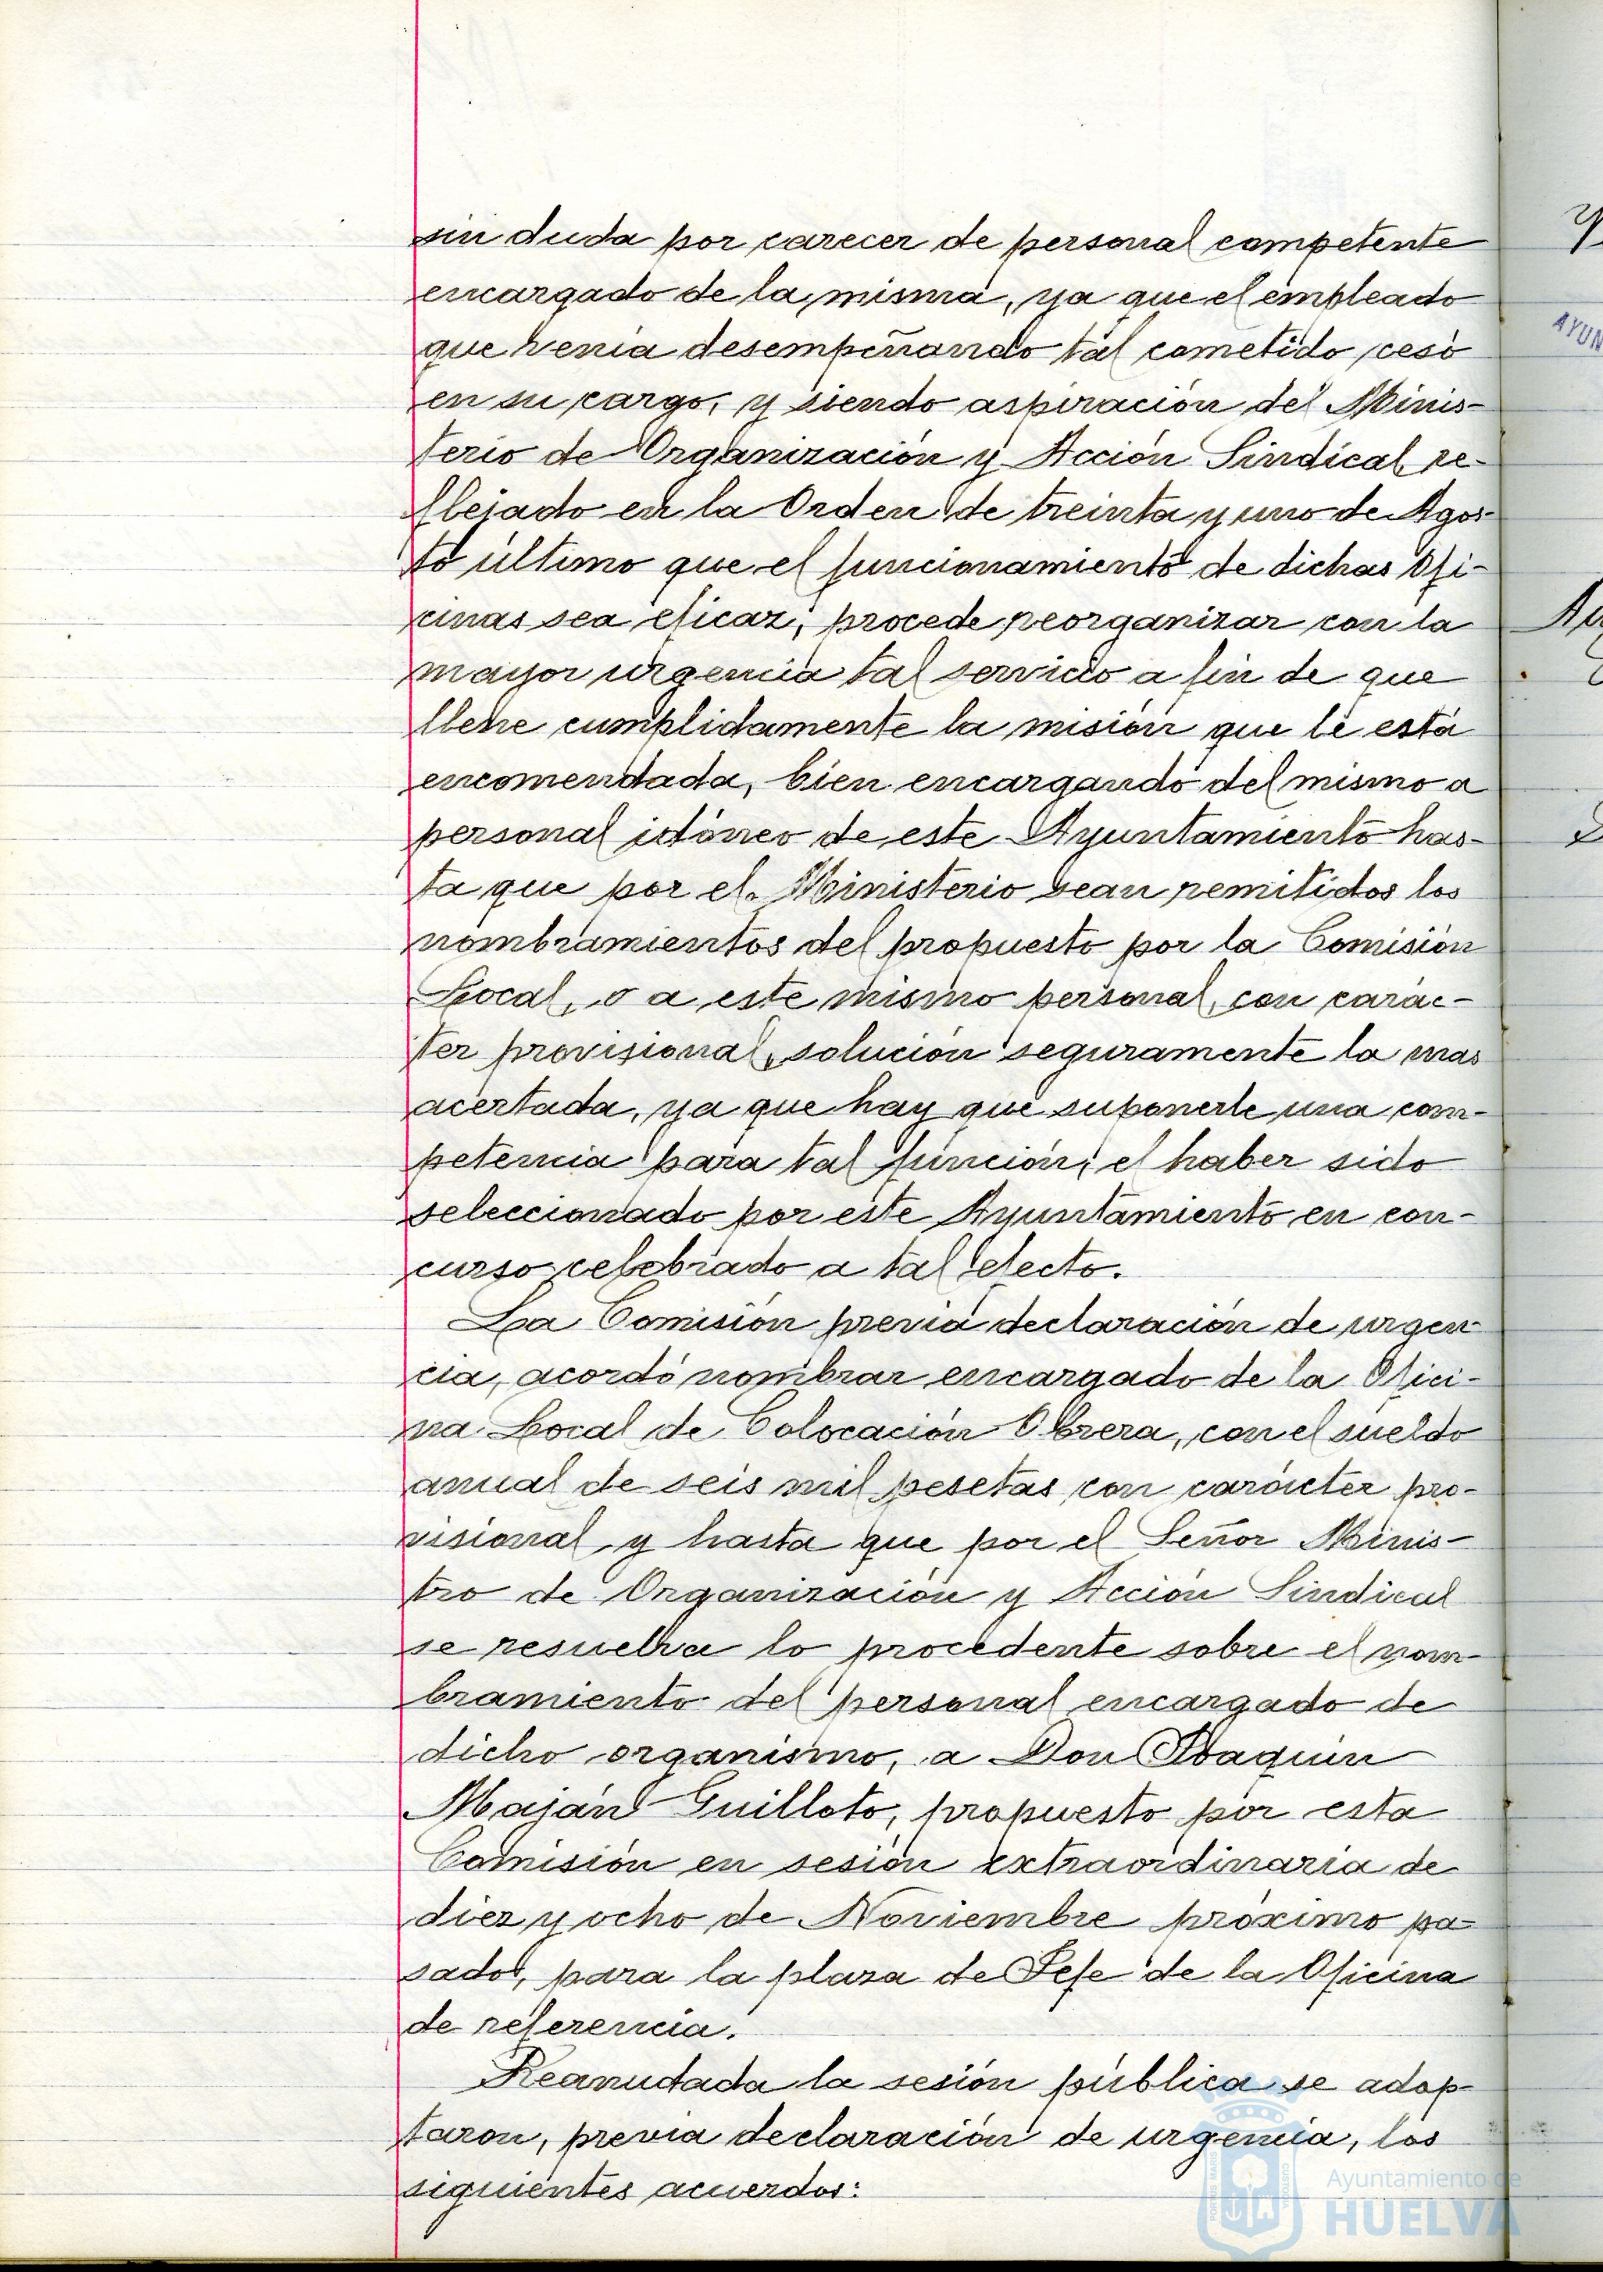 sin duda por carecer de personal competente
encargado de la misma, ya que el empleado
que venía desempeñando tal cometido, cesó
en su cargo, y siendo aspiración del Minis-
terio de Organización y Acción Sindical, re-
flejado en la Orden de treinta y uno de Agos-
to último que el funcionamiento de dichas Ofi-
cinas sea eficaz, procede reorganizar con la
mayor urgencia tal servicio a fin de que
llene cumplidamente la misión que le está
encomendada, bien encargando del mismo a
personal idóneo de este Ayuntamiento has-
ta que por el Ministerio sean remitidos los
nombramientos del propuesto por la Comisión
Local, o a este mismo personal, con carác-
ter provisional, solución seguramente la mas
acertada, ya que hay que suponerle una com-
petencia para tal función, el haber sido
seleccionado por este Ayuntamiento en con-
curso celebrado a tal efecto.
La Comisión previa declaración de urgen-
cia, acordó nombrar encargado de la Ofici-
na Local de Colocación Obrera, con el sueldo
anual de seis mil pesetas con carácter pro-
visional y hasta que por el Señor Minis-
tro de Organización y Acción Sindical
se resuelva lo procedente sobre el nom-
bramiento del personal encargado de
dicho organismo, a Don Joaquín
Maján Guilloto, propuesto por esta
Comisión en sesión extraordinaria de
diez y ocho de Noviembre próximo pa-
sado, para la plaza de Jefe de la Oficina
de referencia.
Reanudada la sesión pública se adop-
taron, previa declaración de urgencia, los
siguientes acuerdos:
AYUN
Ayuntamiento de
HUELVA